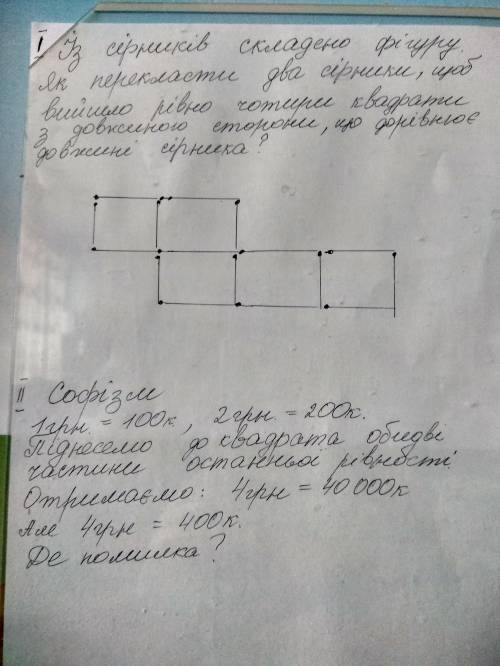 I Із сірників складено фігуру.
Як перекласти два сірники, щоб
вийшло рівно чотири квадрати
з довжиною сторони, що дорівнює
довжині сірника?
II Софізм
1грн. = 100к., 2грн. = 200к.
Піднесемо до квадрата обидві
частини останньої рівності.
Отримаємо: 4грн = 40 000к
Але 4грн = 400к.
Де помилка?